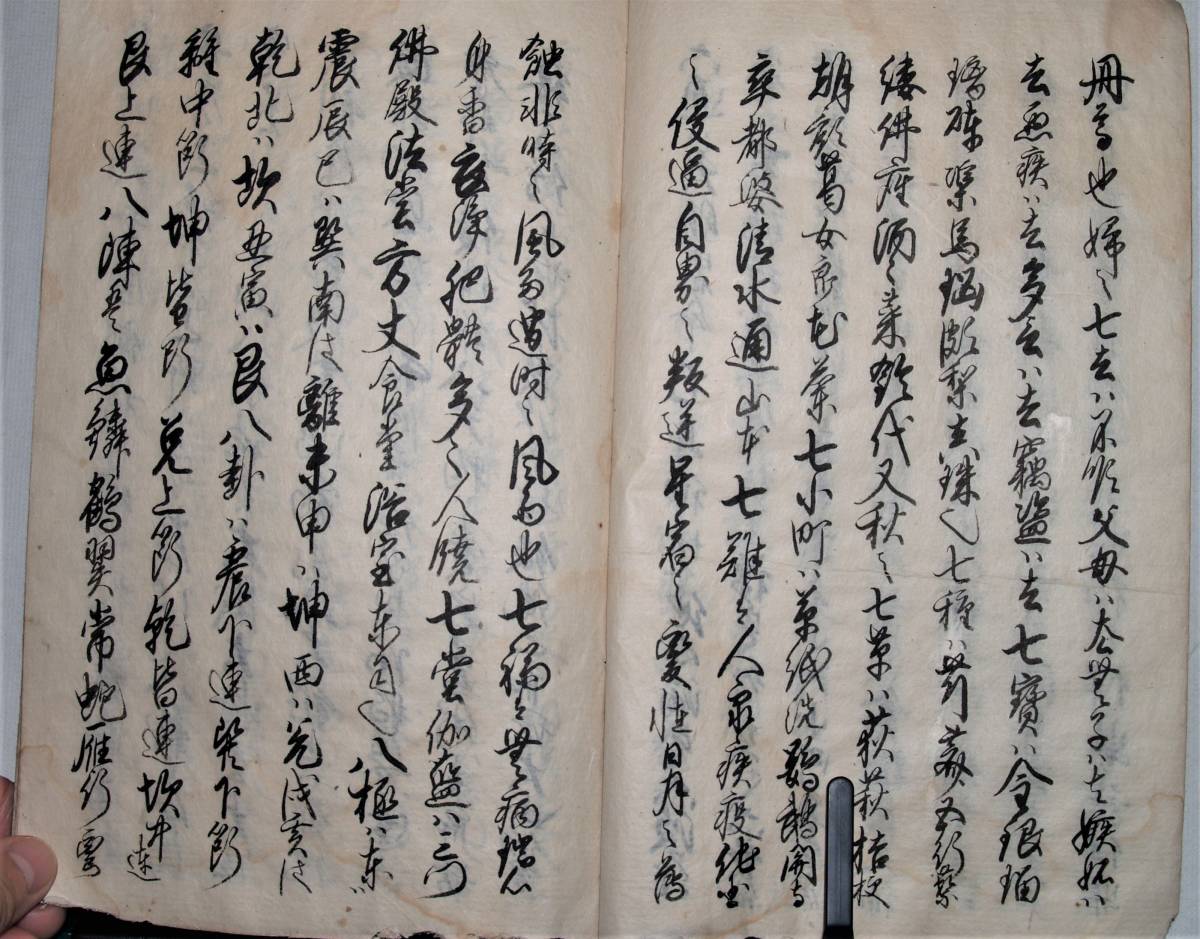 冊尋也婦之七去ハ不順父母ハ去無子ハ去嫉妬ハ
去悪疾ハ去多言ハ去竊盗ハ去七寶ハ金銀瑠
璃硨磲馬瑙頗梨真珠也七種ハ芹薺五行蘩
蔞佛座須々菜鈴代又秋之七草ハ荻萩桔梗
朝顔葛女郎花蘭七小町ハ草紙洗鸚鵡関寺
卒都婆清水通山本七難ハ人衆疾疫他国
之侵逼自界之叛逆星宿之変怪日月之薄
蝕非時之風雨過時之風雨也七福ハ無病端心
身香衣浄肥體多之人饒七堂伽藍ハ三門
佛殿法堂方丈食堂浴室東司也八極ハ東ハ
震辰巳ハ巽南は離未申ハ坤西ハ兌戌亥は
乾北ハ坎丑寅ハ艮八卦ハ震下連巽下断
離中断坤皆断兌上断乾皆連坎中連
艮上連八陣ハ魚鱗鶴翼常蛇雁行